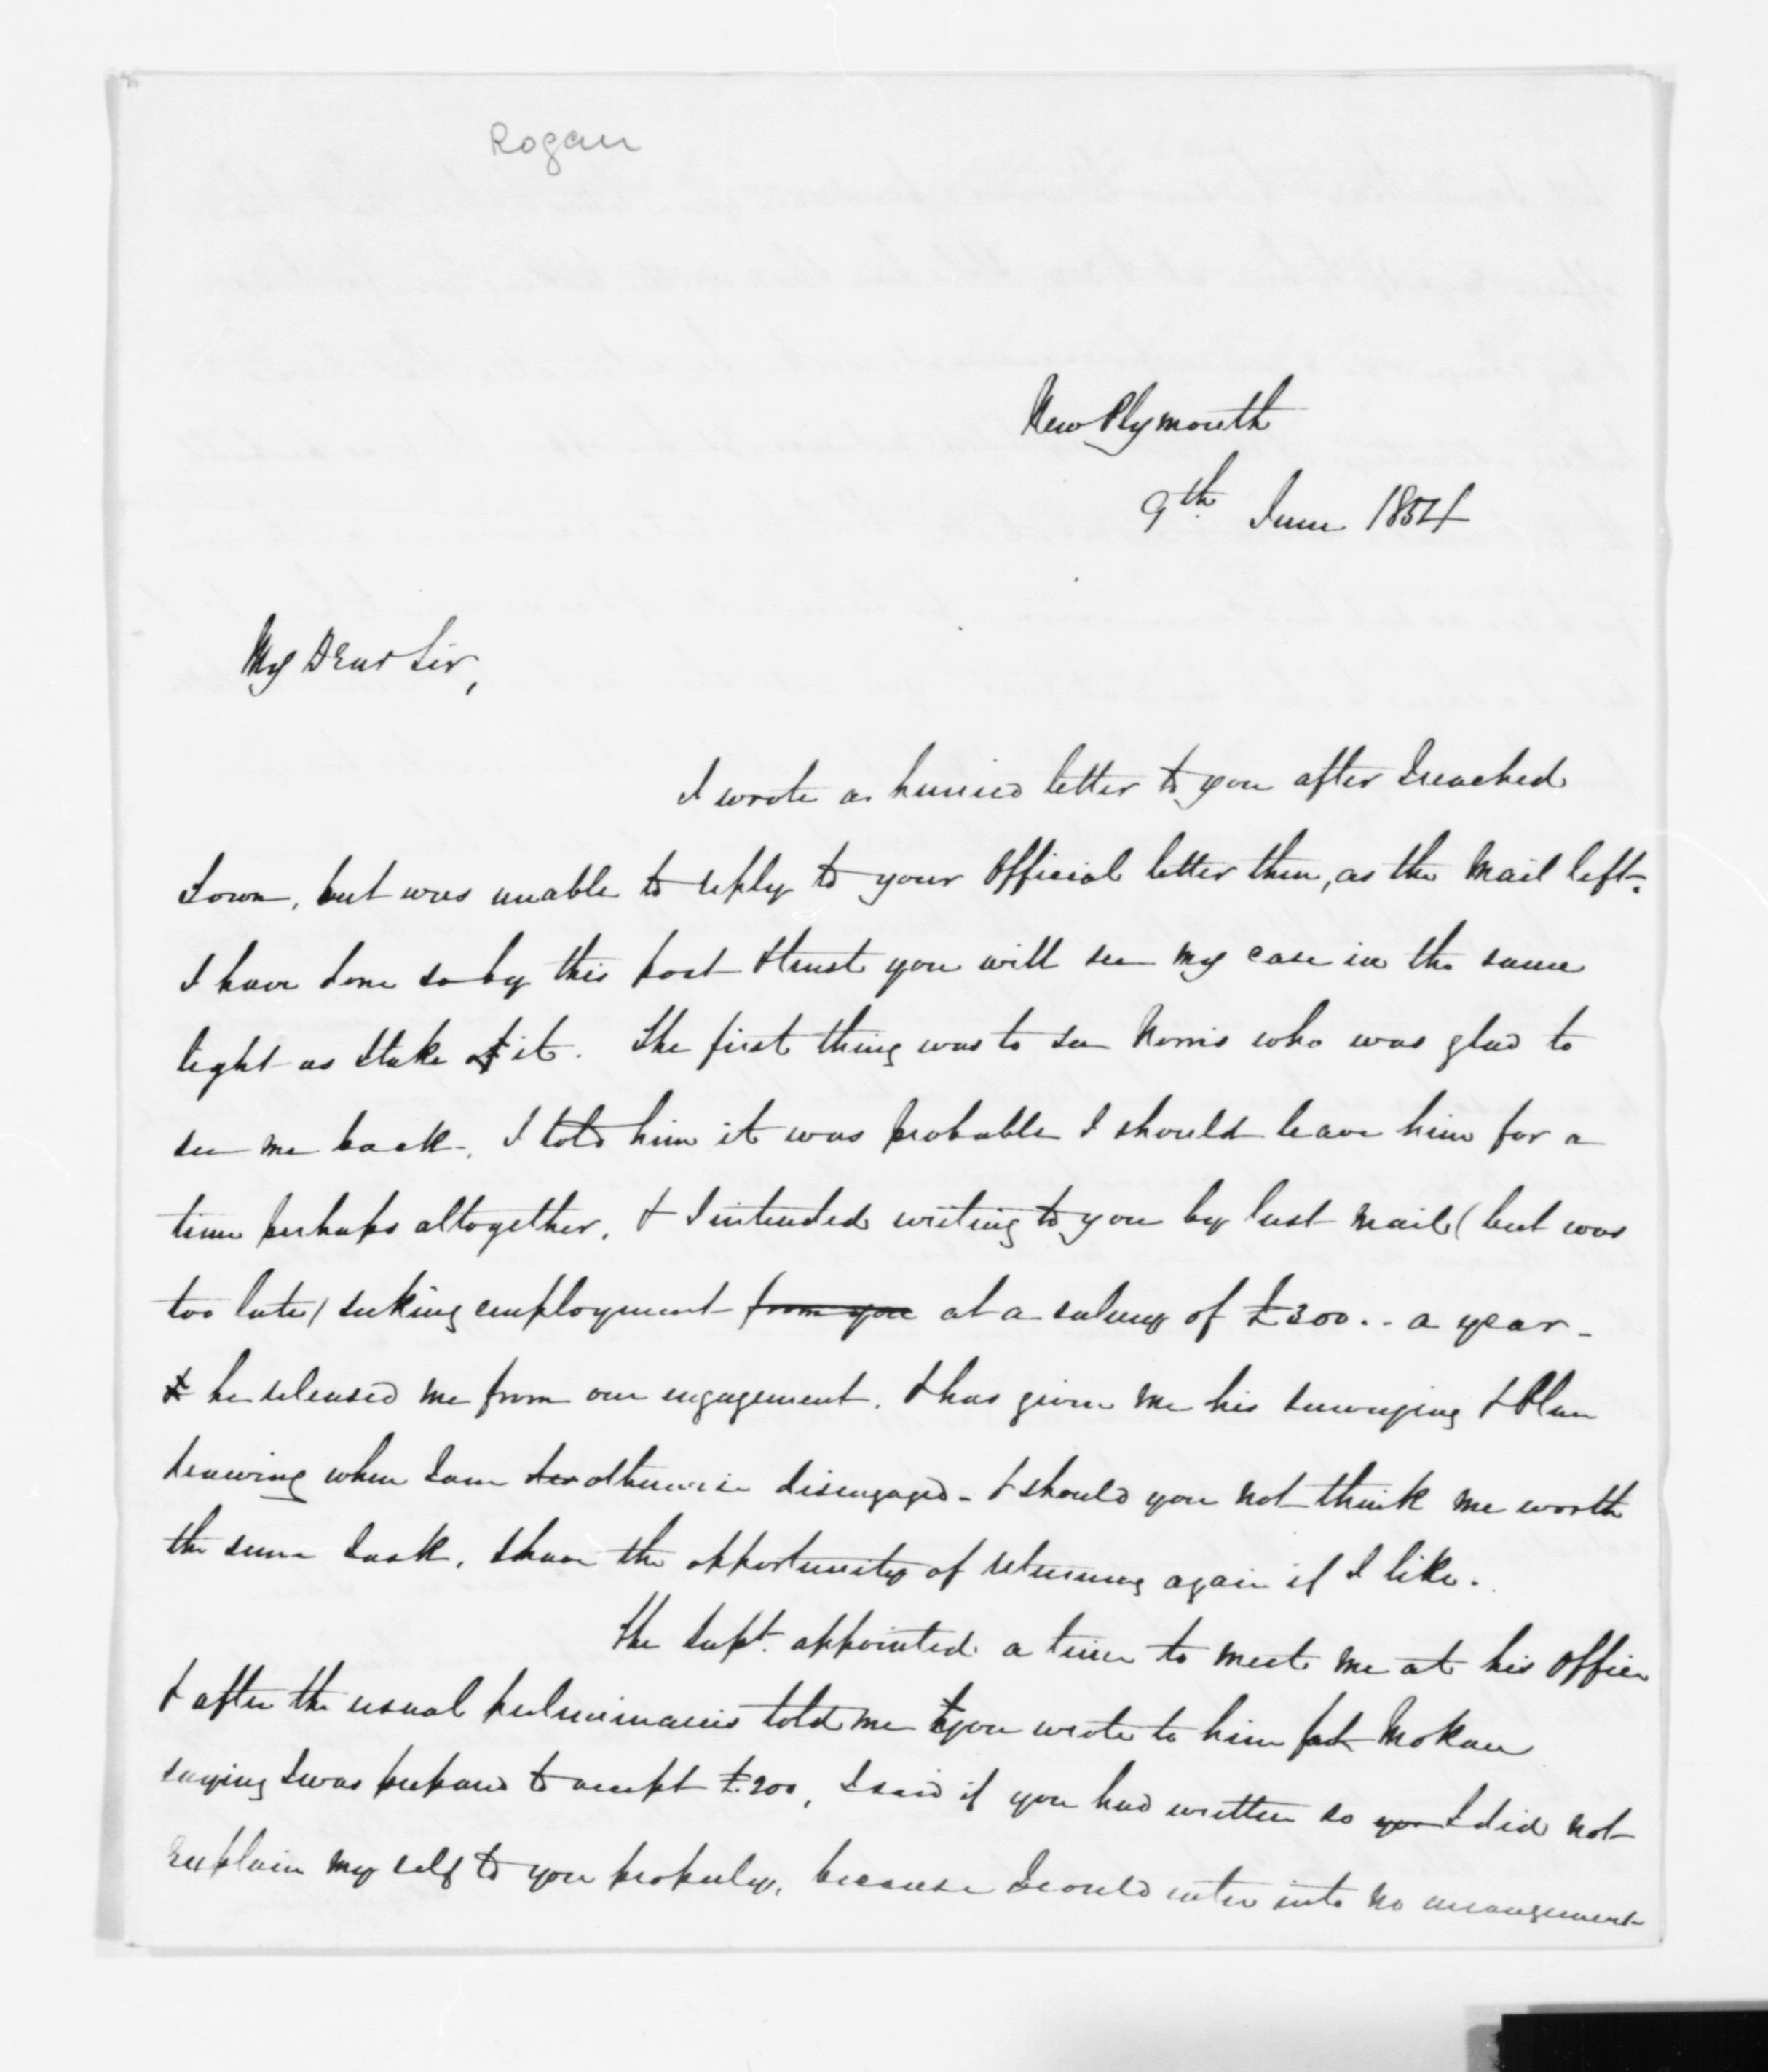 Rogan
New Plymouth
9th June 1854
My Dear Sir,
I wrote a hurried letter to you after I reached
Town, but was unable to reply to your Official letter then, as the Mail left.
I have done so by this post & trust you will see my case in the same
light as I take of it. The first thing was to see Norris who was glad to
see me back. I told him it was probable I should leave him for a
time perhaps altogether, & I intended writing to you by last Mail (but was
too late) seeking employment from you at a salary of £300.. a year -
& he released me from our engagement. & has given me his surveying & Plan
drawing when I am otherwise disengaged - & should you not think me worth
the sum I ask, I have the opportunity of returning again if I like.
The Supt. appointed a time to meet me at his Office
& after the usual preliminaries told me you wrote to him Mokau
saying I was prepared to accept £200, I said if you had written so you I did not
explain my self to you properly, because I could enter into no arrangement